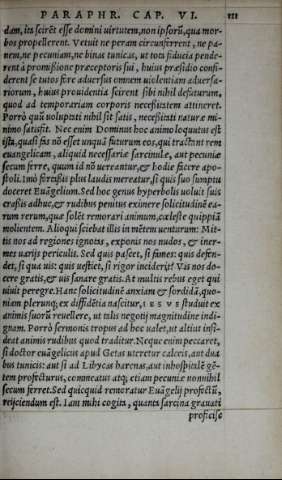 PARAPHR. CAP. VI. III
dam, ita scirēt esse domini uirtutem, non ipsorū, qua mor-
bos propellerent. Vetuit ne peram circumferrent, ne pa-
nem, ne pecuniam, ne binas tunicas, ut tota fiducia pende-
rent à promissione præceptoris sui, huius præsidio confi-
derent se tutos fore aduersus omnem uiolentiam aduersa-
riorum, huius prouidentia scirent sibi nihil defuturum,
quod ad temporariam corporis necessitatem attineret.
Porrò quū uoluptati nihil sit satis, necessitati naturæ mi-
nimo satisfit. Nec enim Dominus hoc animo loquutus est
ista, quasi fas nō esset unquā futurum eos, qui tractant rem
euangelicam, aliquid necessariæ sarcinulæ, aut pecuniæ
secum ferre, quum id nō uereantur, & hodie facere apo-
stoli. imò fortassis plus laudis mereatur, si quis suo sumptu
doceret Euāgelium. Sed hoc genus hyperbolis uoluit suis
crassis adhuc, & rudibus penitus eximere solicitudinē ea-
rum rerum, quæ solēt remorari animum, cæleste quippiā
molientem. Alioqui sciebat illis in mētem uenturam: Mit-
tis nos ad regiones ignotas, exponis nos nudos, & iner-
mes uarijs periculis. Sed quis pascet, si fames: quis defen-
det, si qua uis: quis uestiet, si rigor inciderit? Vis nos do-
cere gratis, & uis sanare gratis. At multis rebus eget qui
uiuit peregre. Hanc solicitudinē anxiam & sordidā, quo-
niam plerunq; ex diffidētia nascitur, IESVS studuit ex
animis suorū reuellere, ut talis negotij magnitudine indi-
gnam. Porrò sermonis tropus ad hoc ualet, ut altius insi-
deat animis rudibus quod traditur. Neque enim peccaret,
si doctor euāgelicus apud Getas uteretur calceis, aut dua
bus tunicis: aut si ad Libycas harenas, aut inhospitalē gē-
tem profecturus, commeatus atq; etiam pecuniæ nonnihil
secum ferret. Sed quicquid remoratur Euāgelij profectū,
reijciendum est. Iam mihi cogita, quanta sarcina grauati
proficisc